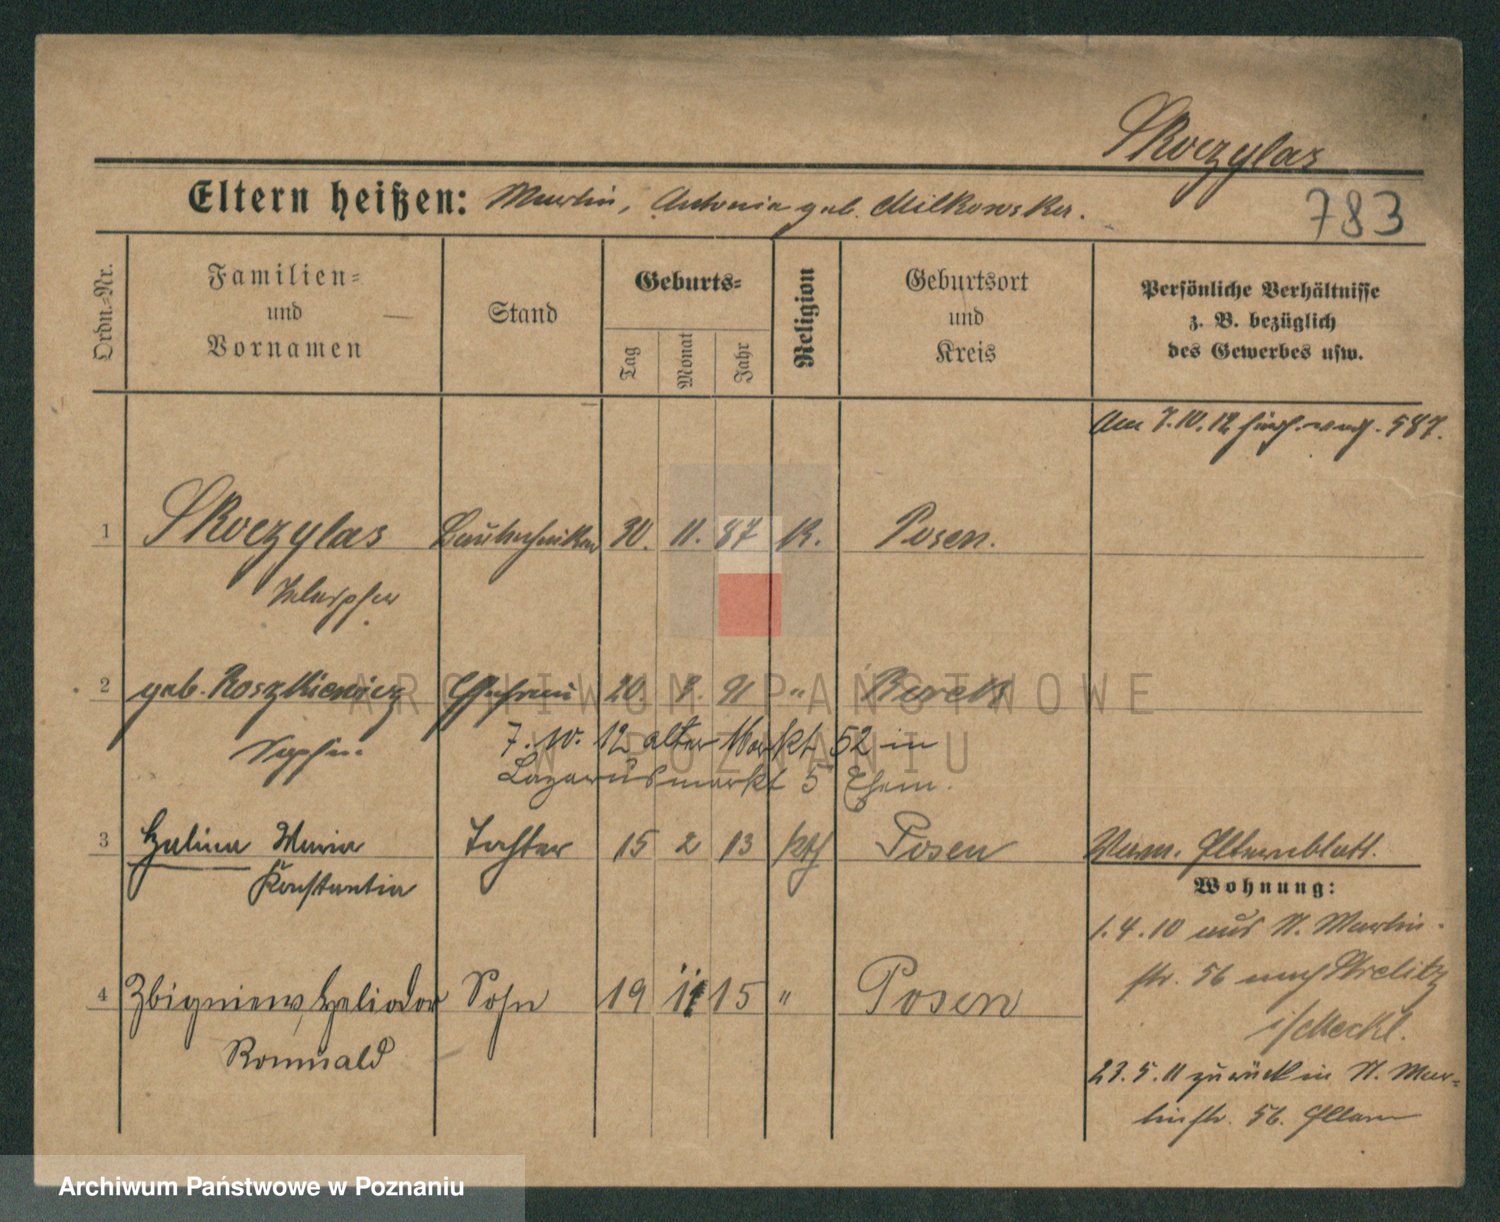 Skoczylas
Eltern heißen: Martin, Antonia geb. Milkowska.
783
Ordn.-Nr.
Familien-
und
Vornamen
Stand
Geburts-
Tag
Monat
Jahr
Religion
Geburtsort
und
Kreis
Persönliche Verhältnisse
z. B. bezüglich
des Gewerbes usw.
Am 7.10.12 587.
1 Skoczylas Bautechniker 30. 11. 87 K. Posen.
2 geb. Roszkiewicz Ehefrau 20. 91 " Borek
Sophie
7. 10. 12 alter Markt 52 in
Lazarusmarkt 5 Ehem.
3 Halina Maria Tochter 15 2 13 kth Posen Verm. Elternblatt.
Konstantia
Wohnung:
1.4.10 aus St. Martin-
str. 56 nach Strelitz
i/Meckl.
4 Zbigniew, Heliodor Sohn 19 11 15 " Posen
Romuald
23.5.11 zurück in St. Mar-
tinstr. 56. Eltern
ARCHIWUM PAŃSTWOWE
W POZNANIU
Archiwum Państwowe w Poznaniu